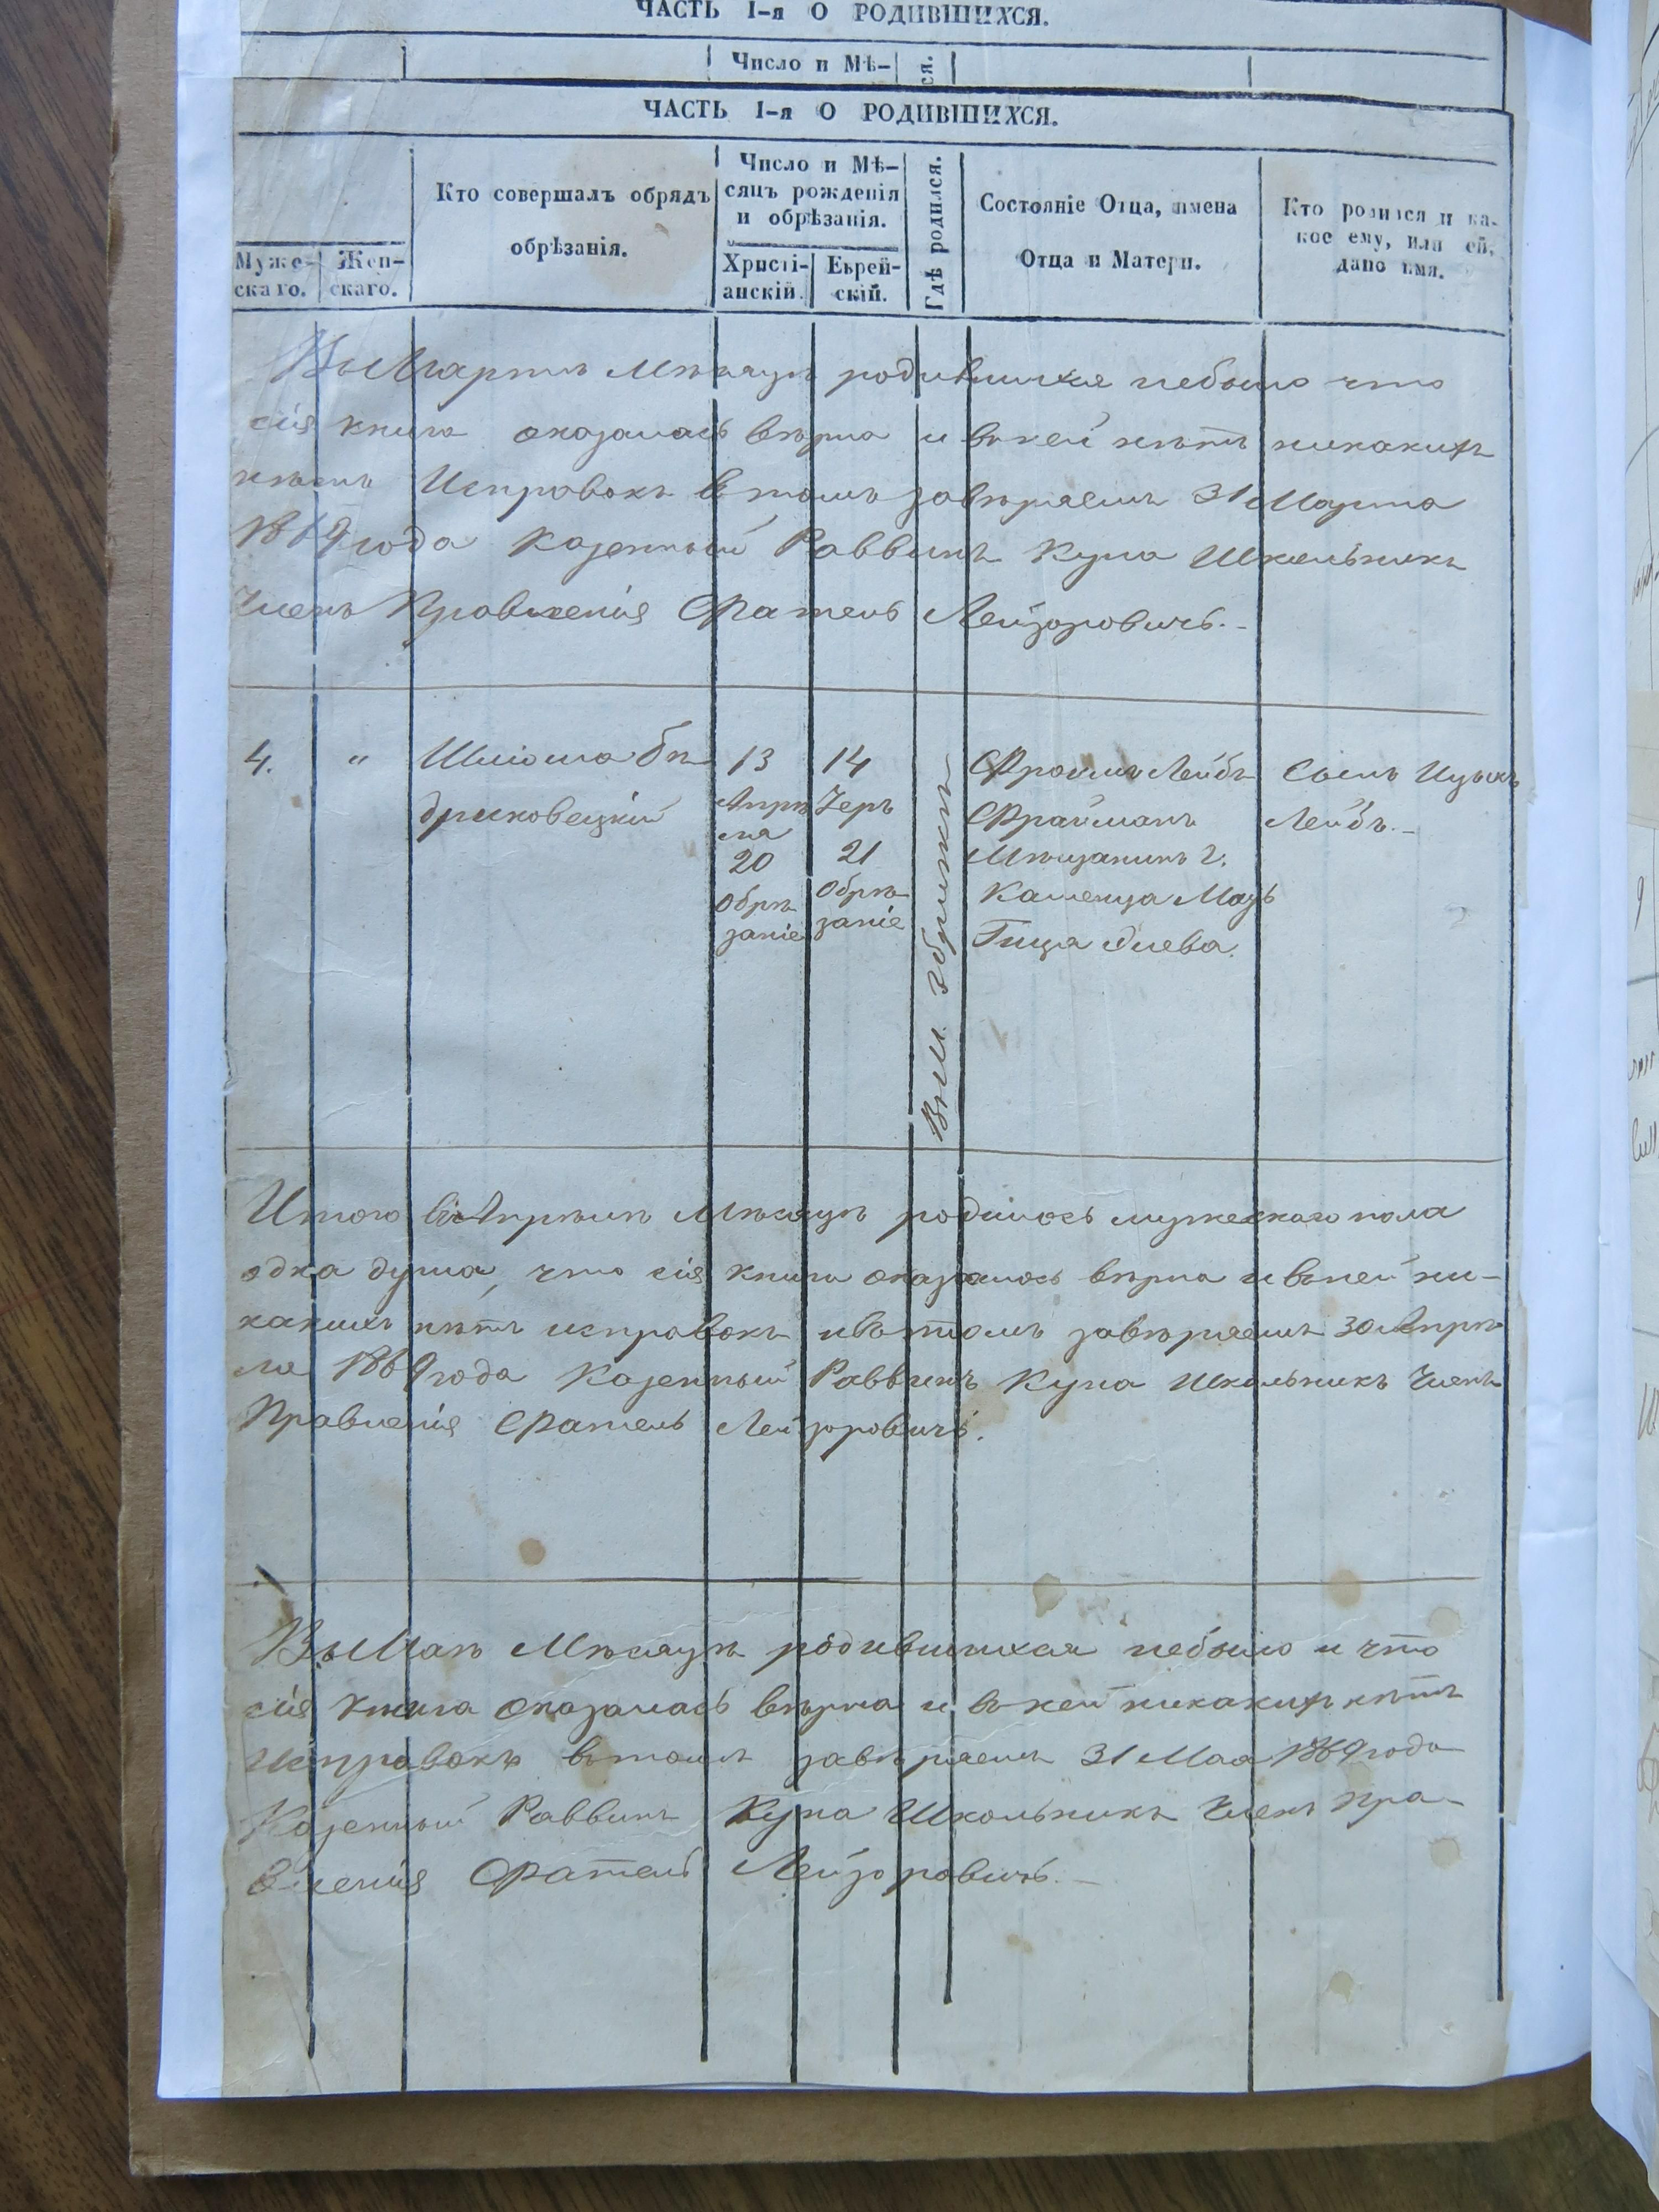 ЧАСТЬ I-я О РОДИВШИХСЯ.
Число и Мѣ-
ся.
ЧАСТЬ I-я О РОДИВШИХСЯ.
Муже-
скаго.
Жен-
скаго.
Кто совершалъ обрядъ
обрѣзанія.
Число и Мѣ-
сяцъ рожденія
и обрѣзанія.
Христі-
анскій.
Еврей-
скій.
Гдѣ родился.
Состояніе Отца, имена
Отца и Матери.
Кто родился и ка-
кое ему, или ей,
дано имя.
Въ Мартѣ Мѣсяцѣ родившихся небыло что
сія книга оказалась вѣрна и въ ней нѣтъ никакихъ
Исправокъ в томъ завѣряемъ 31 Марта
1869 года Казенный Раввинъ Купа Школьникъ
Членъ Правленія Фатель Лейзоровичъ.-
4.
"
Шлiома
дриковецкій
13
Апрѣ
ля
20
Обрѣ
заніе
14
Іеръ
21
Обрѣ
заніе
Въ м.
Фроимъ Лейбъ
Фрайманъ
Мѣщанинъ г.
Каменца Мать
Гица
Сынъ Ицыкъ
Лейбъ.-
Итого въ Апрѣлѣ Мѣсяцѣ родилось мужескаго пола
одна душа, что сія книга оказалось вѣрна и въ ней ни-
какихъ нѣтъ исправокъ и в томъ завѣряемъ 30 Апрѣ
ля 1869 года Казенный Раввинъ Купа Школьникъ Членъ
Правленія Фатель Лейзоровичъ.
Въ Маѣ Мѣсяцѣ родившихся небыло и что
сія книга оказалась вѣрна и въ ней никакихъ нѣтъ
Исправокъ в томъ завѣряемъ 31 Мая 1869 года
Казенный Раввинъ Купа Школьникъ Членъ Пра-
вленія Фатель Лейзоровичъ.-